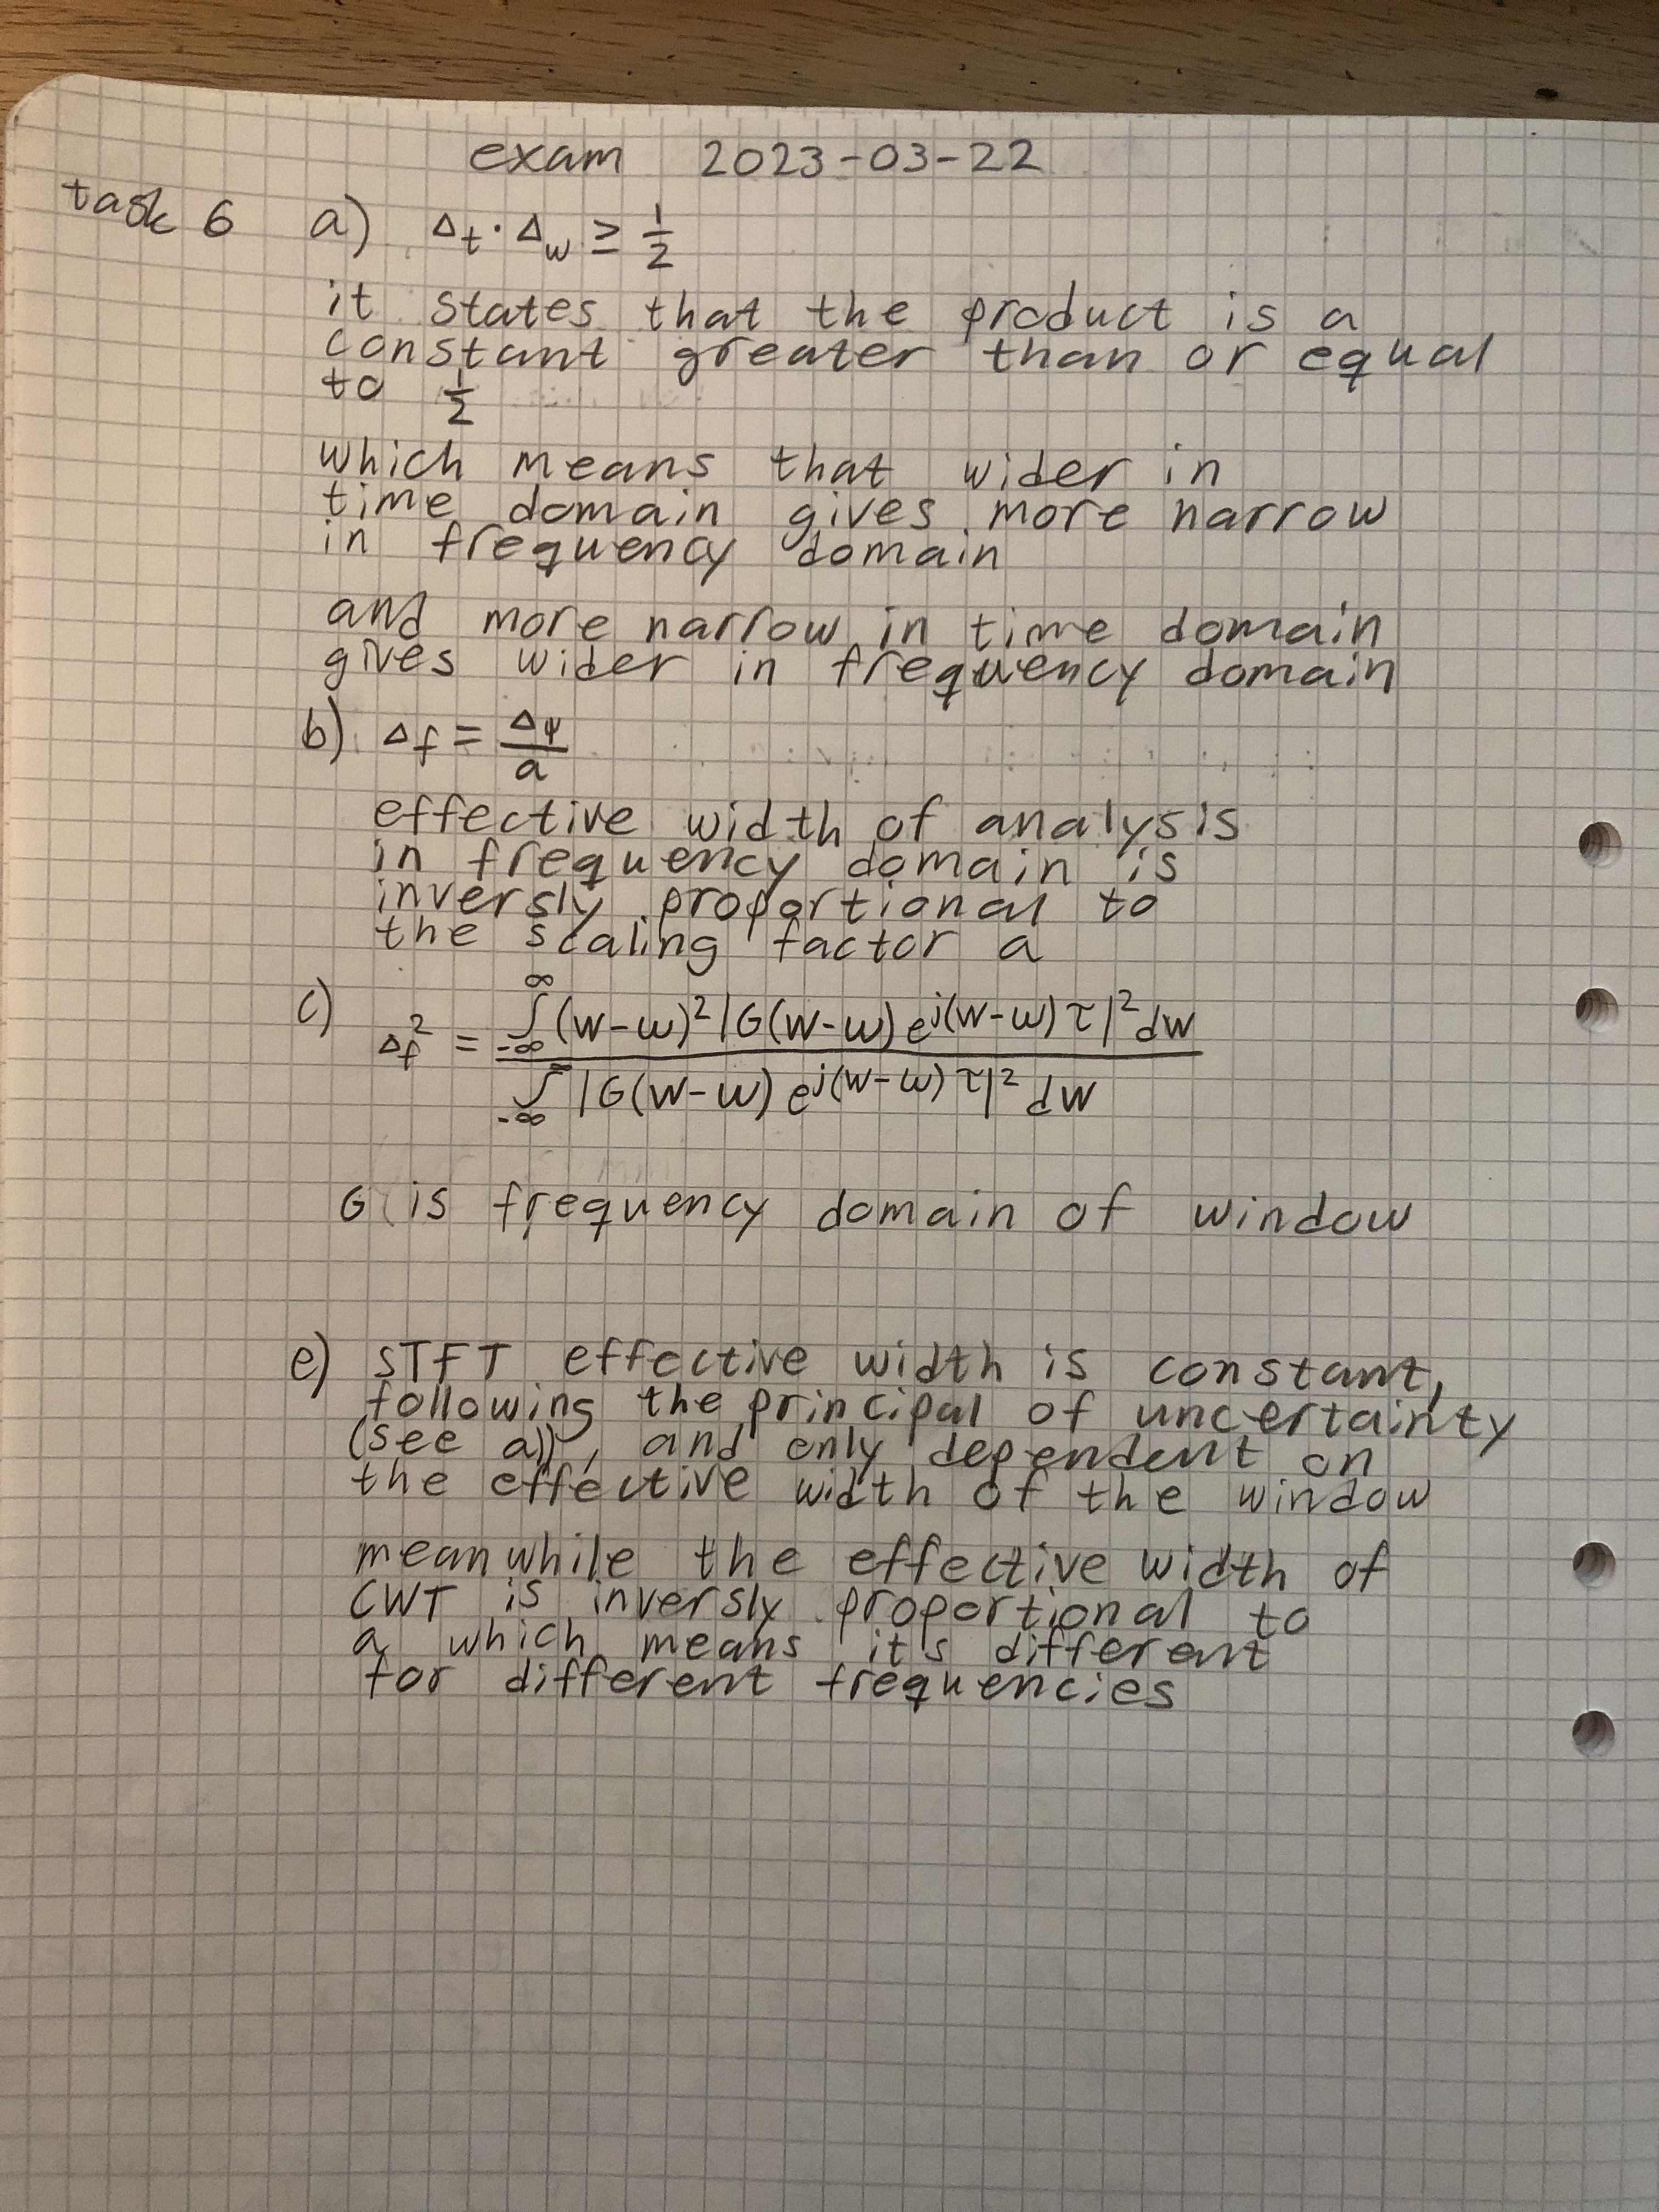 exam 2023-03-22
task 6 a) Δt · Δw ≥ 1/2
it states that the product is a
constant greater than or equal
to 1/2
which means that wider in
time domain gives more narrow
in frequency domain
and more narrow in time domain
gives wider in frequency domain
b) Δf = Δψ/a
effective width of analysis
in frequency domain is
inversly proportional to
the scaling factor a
c) Δf² = ∫_{-∞}^{∞} (W-ω)² |G(W-ω) e^{j(W-ω)τ}|² dW / ∫_{-∞}^{∞} |G(W-ω) e^{j(W-ω)τ}|² dW
G is frequency domain of window
e) STFT effective width is constant,
following the principal of uncertainty
(see a)), and only dependent on
the effective width of the window
meanwhile the effective width of
CWT is inversly proportional to
a which means it's different
for different frequencies